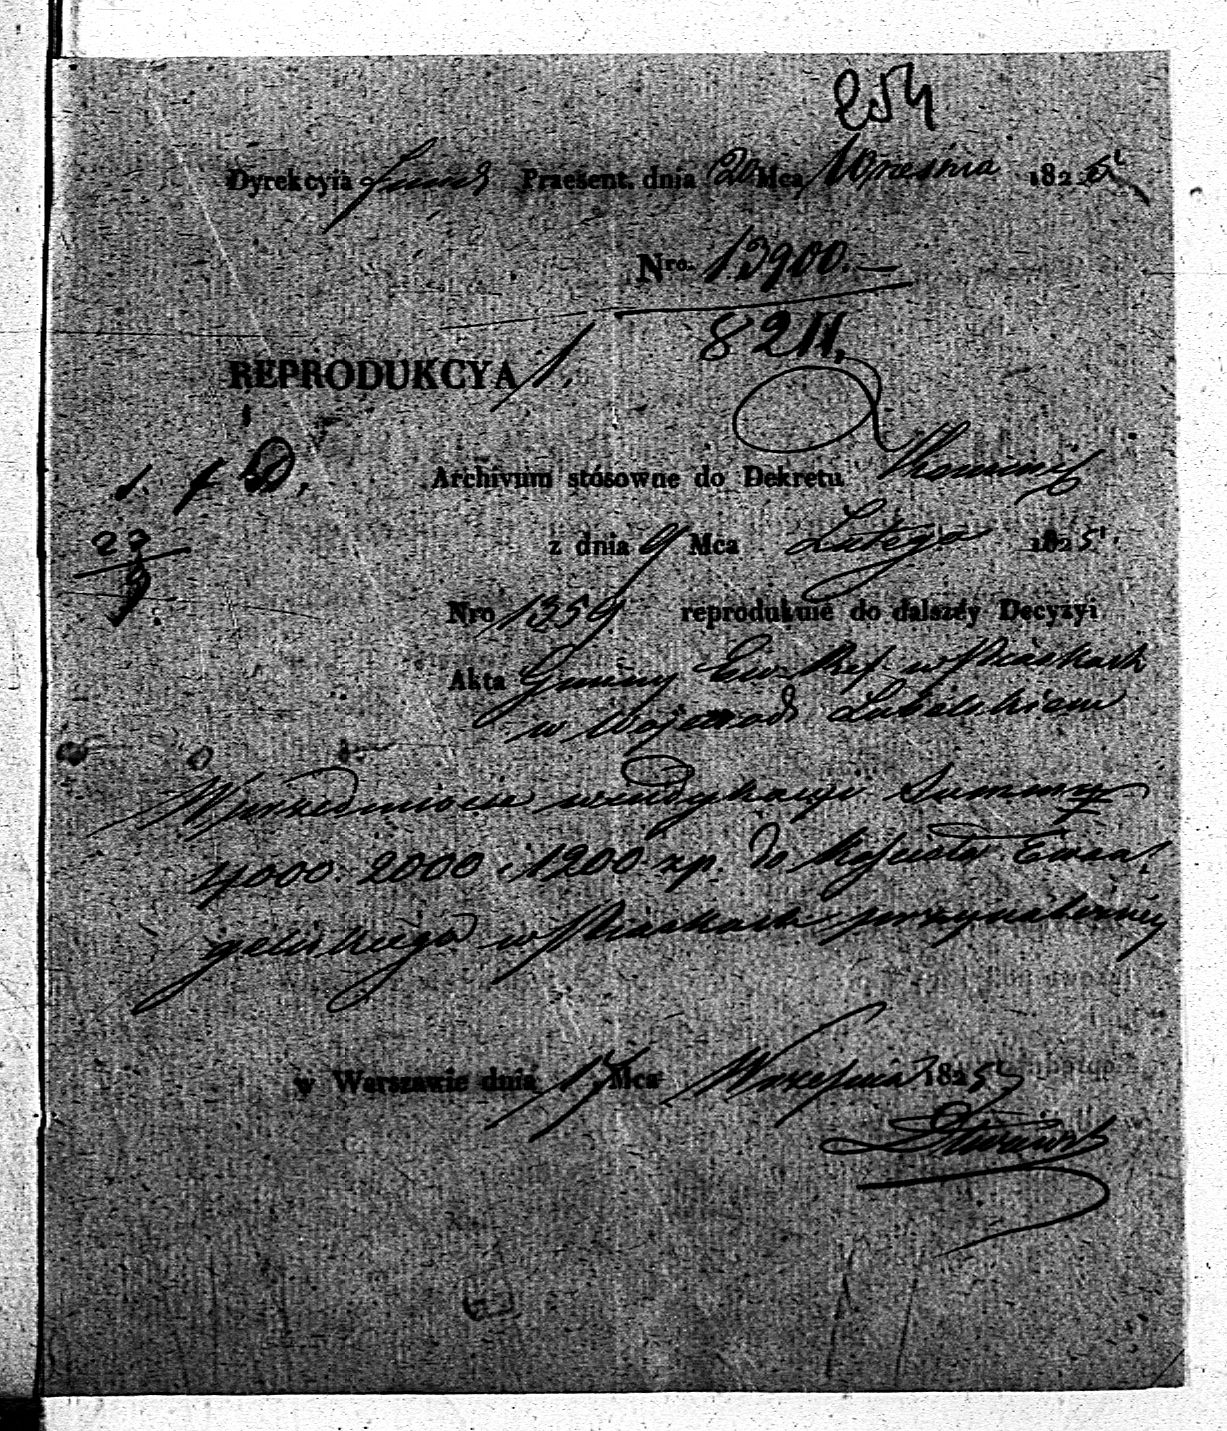 254
Dyrekcyia Fund. Praesent. dnia 20 Mca Września 1825
Nro. 13900.—
8211.
REPRODUKCYA 1.
Archivum stósowne do Dekretu Kommis
z dnia 9 Mca Lutego 1825.
Nro 1359 reprodukuie do dalszéy Decyzyi
Akta Gminy Ew. Ref. w Piaskach
w Wojewod. Lubelskiem
W przedmiocie windykacyi Summy
4000. 2000 i 1200 zp. do Kościoła Ewan
gelickiego w Piaskach
w Warszawie dnia 17 Mca Września 1825